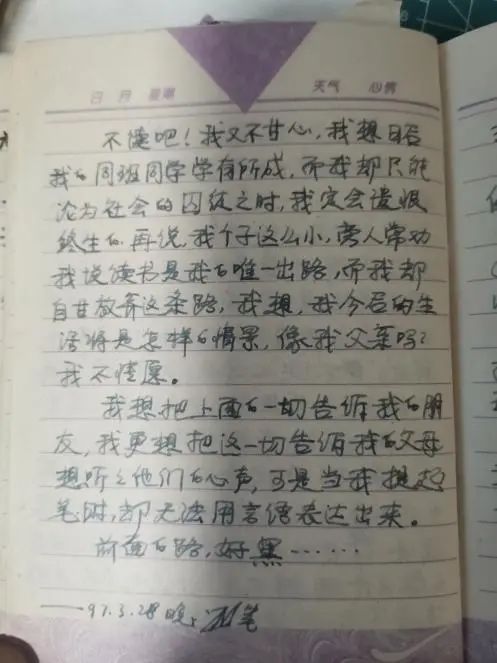 日 月 星期 天气 心情
不读吧！我又不甘心，我想日后
我的同班同学学有所成，而我却只能
沦为社会的囚徒之时，我定会遗恨
终生的。再说，我个子这么小，旁人常劝
我说读书是我的唯一出路，而我却
自甘放弃这条路，我想，我今后的生
活将是怎样的情景，像我父亲吗？
我不情愿。
我想把上面的一切告诉我的朋
友，我更想把这一切告诉我的父母
想听之他们的心声，可是当我提起
笔时，却无法用言语表达出来。
前面的路，好黑……
——97.3.28晚 笔